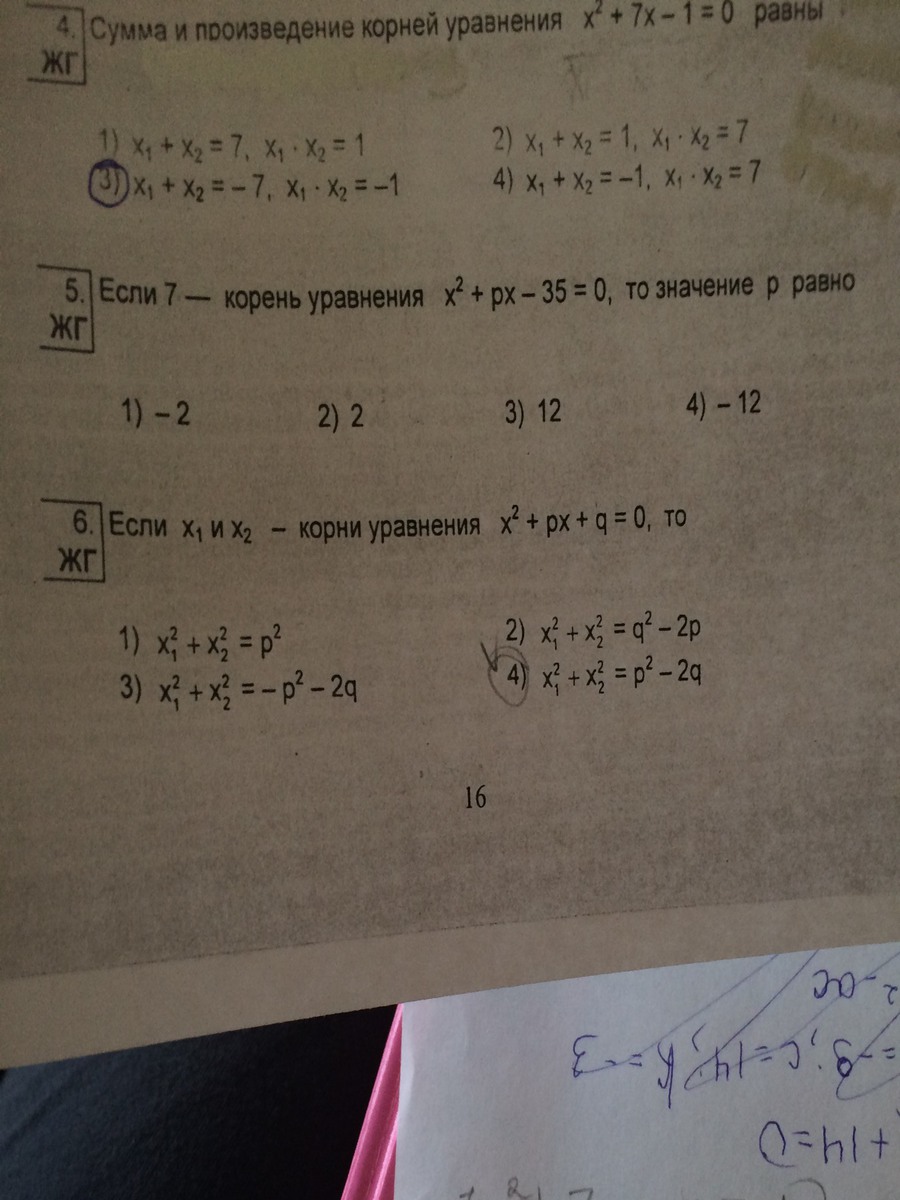 4. Сумма и произведение корней уравнения x² + 7x – 1 = 0 равны
ЖГ
1) x₁ + x₂ = 7, x₁ · x₂ = 1 2) x₁ + x₂ = 1, x₁ · x₂ = 7
3) x₁ + x₂ = – 7, x₁ · x₂ = –1 4) x₁ + x₂ = –1, x₁ · x₂ = 7
5. Если 7 — корень уравнения x² + px – 35 = 0, то значение p равно
ЖГ
1) – 2 2) 2 3) 12 4) – 12
6. Если x₁ и x₂ – корни уравнения x² + px + q = 0, то
ЖГ
1) x₁² + x₂² = p² 2) x₁² + x₂² = q² – 2p
3) x₁² + x₂² = – p² – 2q 4) x₁² + x₂² = p² – 2q
16
+14=0
=-9; c=14; k=-3
² -ac